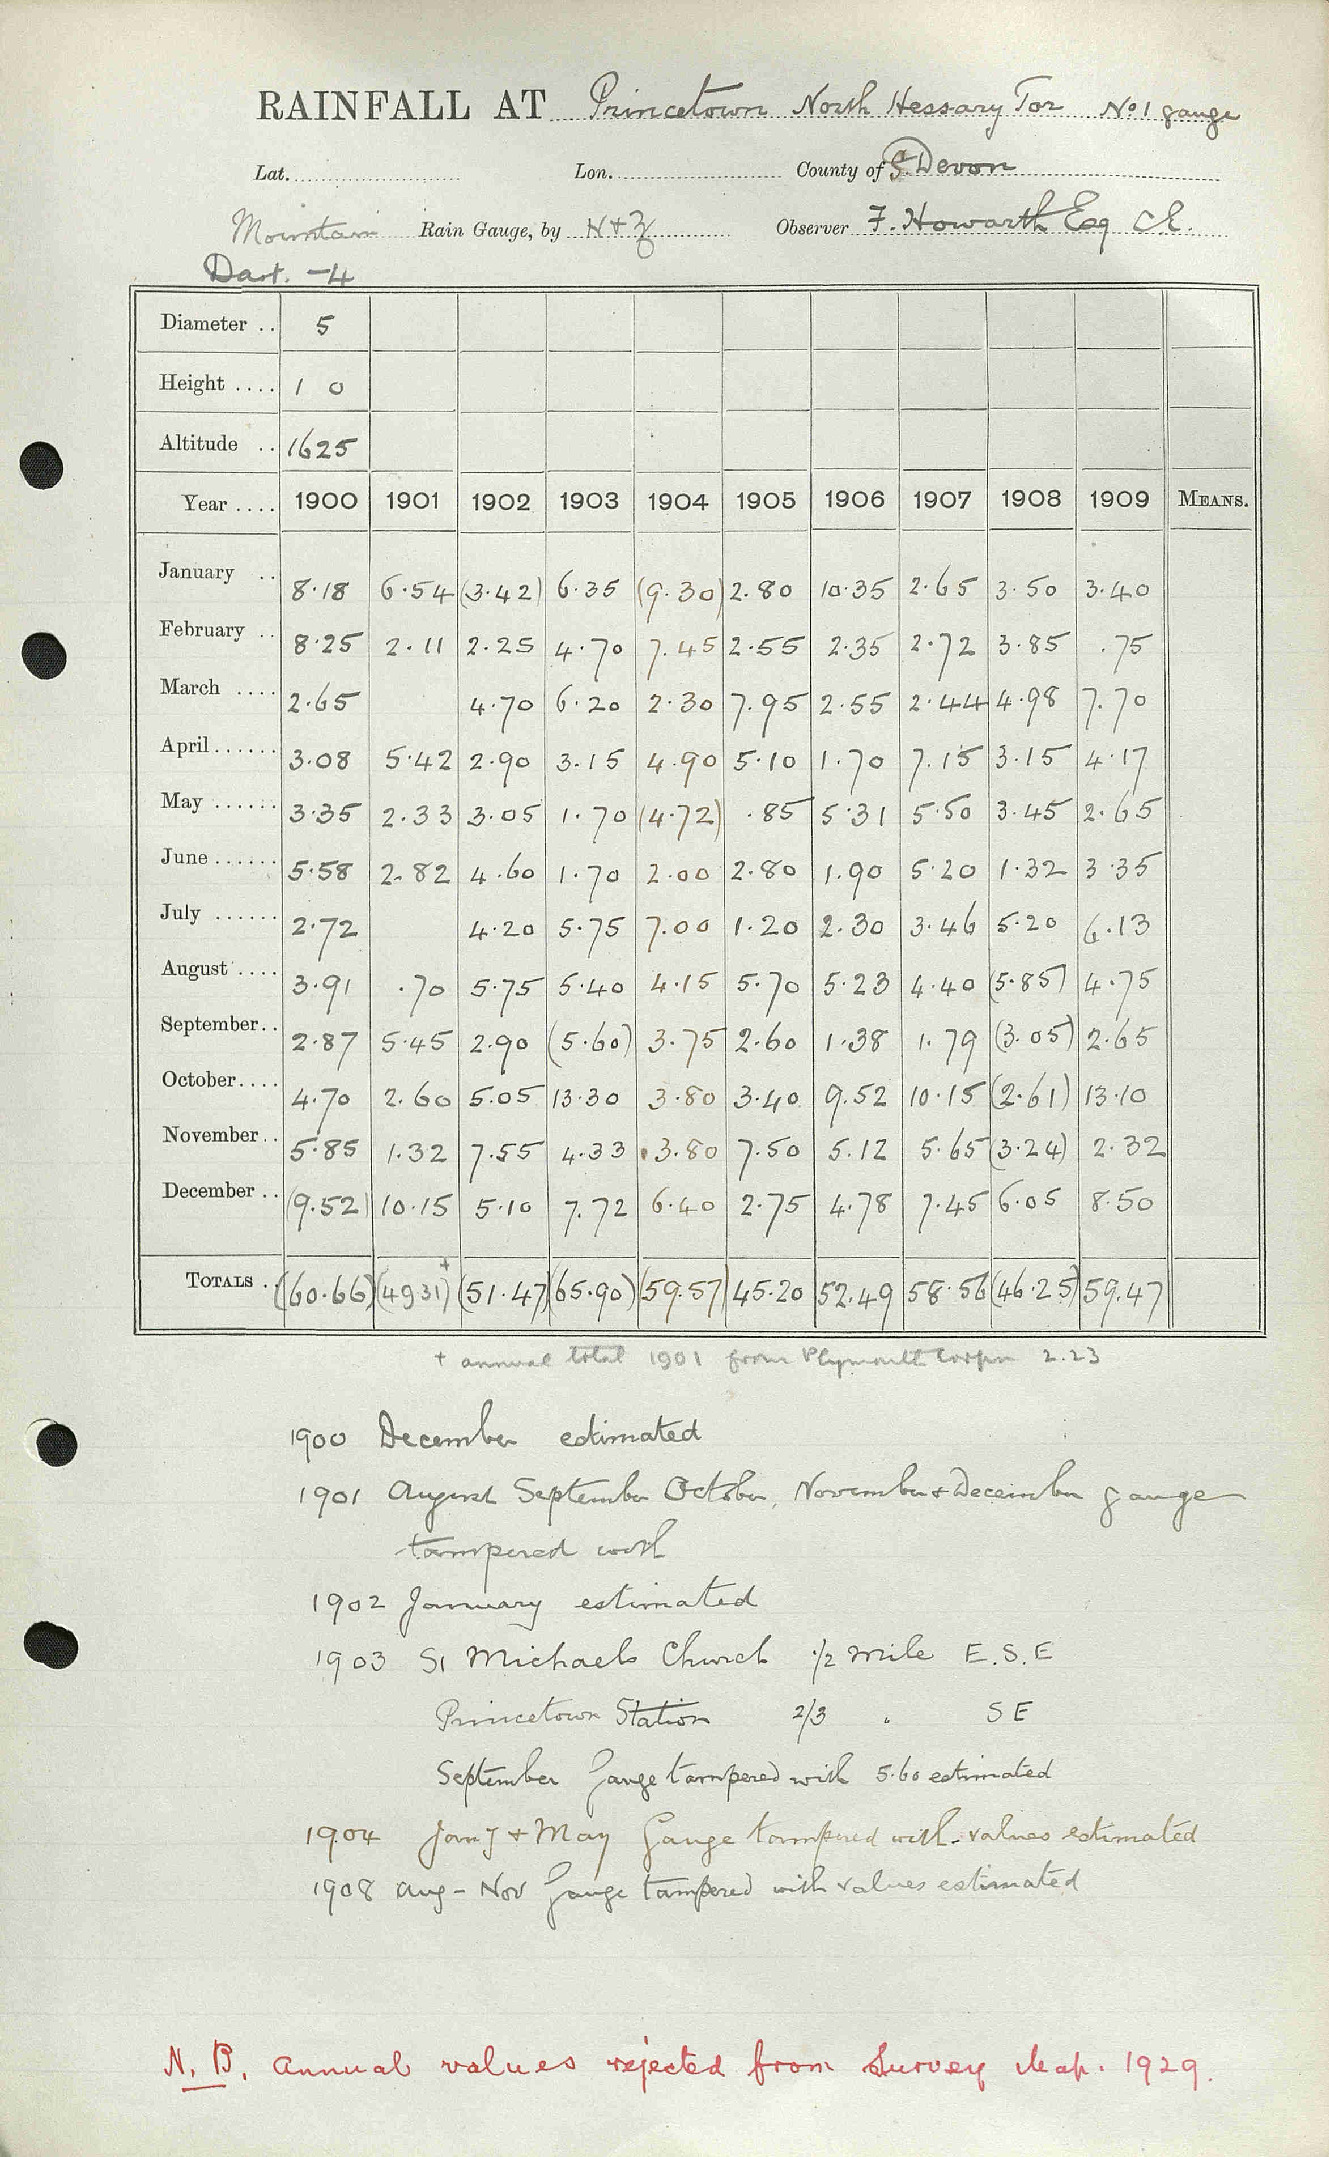 RAINFALL AT Princetown North Hessary Tor No 1 gauge
Lat. Lon. County of S. Devon
Mountain Rain Gauge, by N + Z Observer F. Howarth Esq C.E.
Dart. -4
Diameter .. 5
Height .... 1 0
Altitude .. 1625
Year .... 1900 1901 1902 1903 1904 1905 1906 1907 1908 1909 MEANS.
January .. 8.18 6.54 (3.42) 6.35 (9.30) 2.80 10.35 2.65 3.50 3.40
February .. 8.25 2.11 2.25 4.70 7.45 2.55 2.35 2.72 3.85 .75
March .... 2.65 4.70 6.20 2.30 7.95 2.55 2.44 4.98 7.70
April...... 3.08 5.42 2.90 3.15 4.90 5.10 1.70 7.15 3.15 4.17
May ...... 3.35 2.33 3.05 1.70 (4.72) .85 5.31 5.50 3.45 2.65
June ...... 5.58 2.82 4.60 1.70 2.00 2.80 1.90 5.20 1.32 3.35
July ...... 2.72 4.20 5.75 7.00 1.20 2.30 3.46 5.20 6.13
August .... 3.91 .70 5.75 5.40 4.15 5.70 5.23 4.40 (5.85) 4.75
September.. 2.87 5.45 2.90 (5.60) 3.75 2.60 1.38 1.79 (3.05) 2.65
October.... 4.70 2.60 5.05 13.30 3.80 3.40 9.52 10.15 (2.61) 13.10
November.. 5.85 1.32 7.55 4.33 3.80 7.50 5.12 5.65 (3.24) 2.32
December .. (9.52) 10.15 5.10 7.72 6.40 2.75 4.78 7.45 6.05 8.50
TOTALS .. (60.66) (49.31)+ (51.47) (65.90) (59.57) 45.20 52.49 58.56 (46.25) 59.47
+ annual total 1901 from Plymouth Corpn 2.23
1900 December estimated
1901 August September October, November + December gauge
tampered with
1902 January estimated
1903 St Michaels Church 1/2 mile E.S.E
Princetown Station 2/3 " SE
September gauge tampered with 5.60 estimated
1904 Jany + May Gauge tampered with - values estimated
1908 Aug - Nov Gauge tampered with values estimated
N. B. Annual values rejected from Survey Map. 1929.